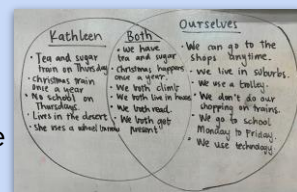 Kathleen
• Tea and sugar
train on Thursday.
• Christmas train
once a year
• No school on
Thursdays.
• Lives in the desert
• She uses a wheel barrow
Both
• We have
tea and sugar
• Christmas happens
once a year.
• We both climb
• We both live in house
• We both read.
• We both get
present
Ourselves
• We can go to the
shops anytime.
• We live in suburbs.
• We use a trolley.
• We don't do our
shopping on trains.
• We go to school
Monday to Friday.
• We use technology.
e